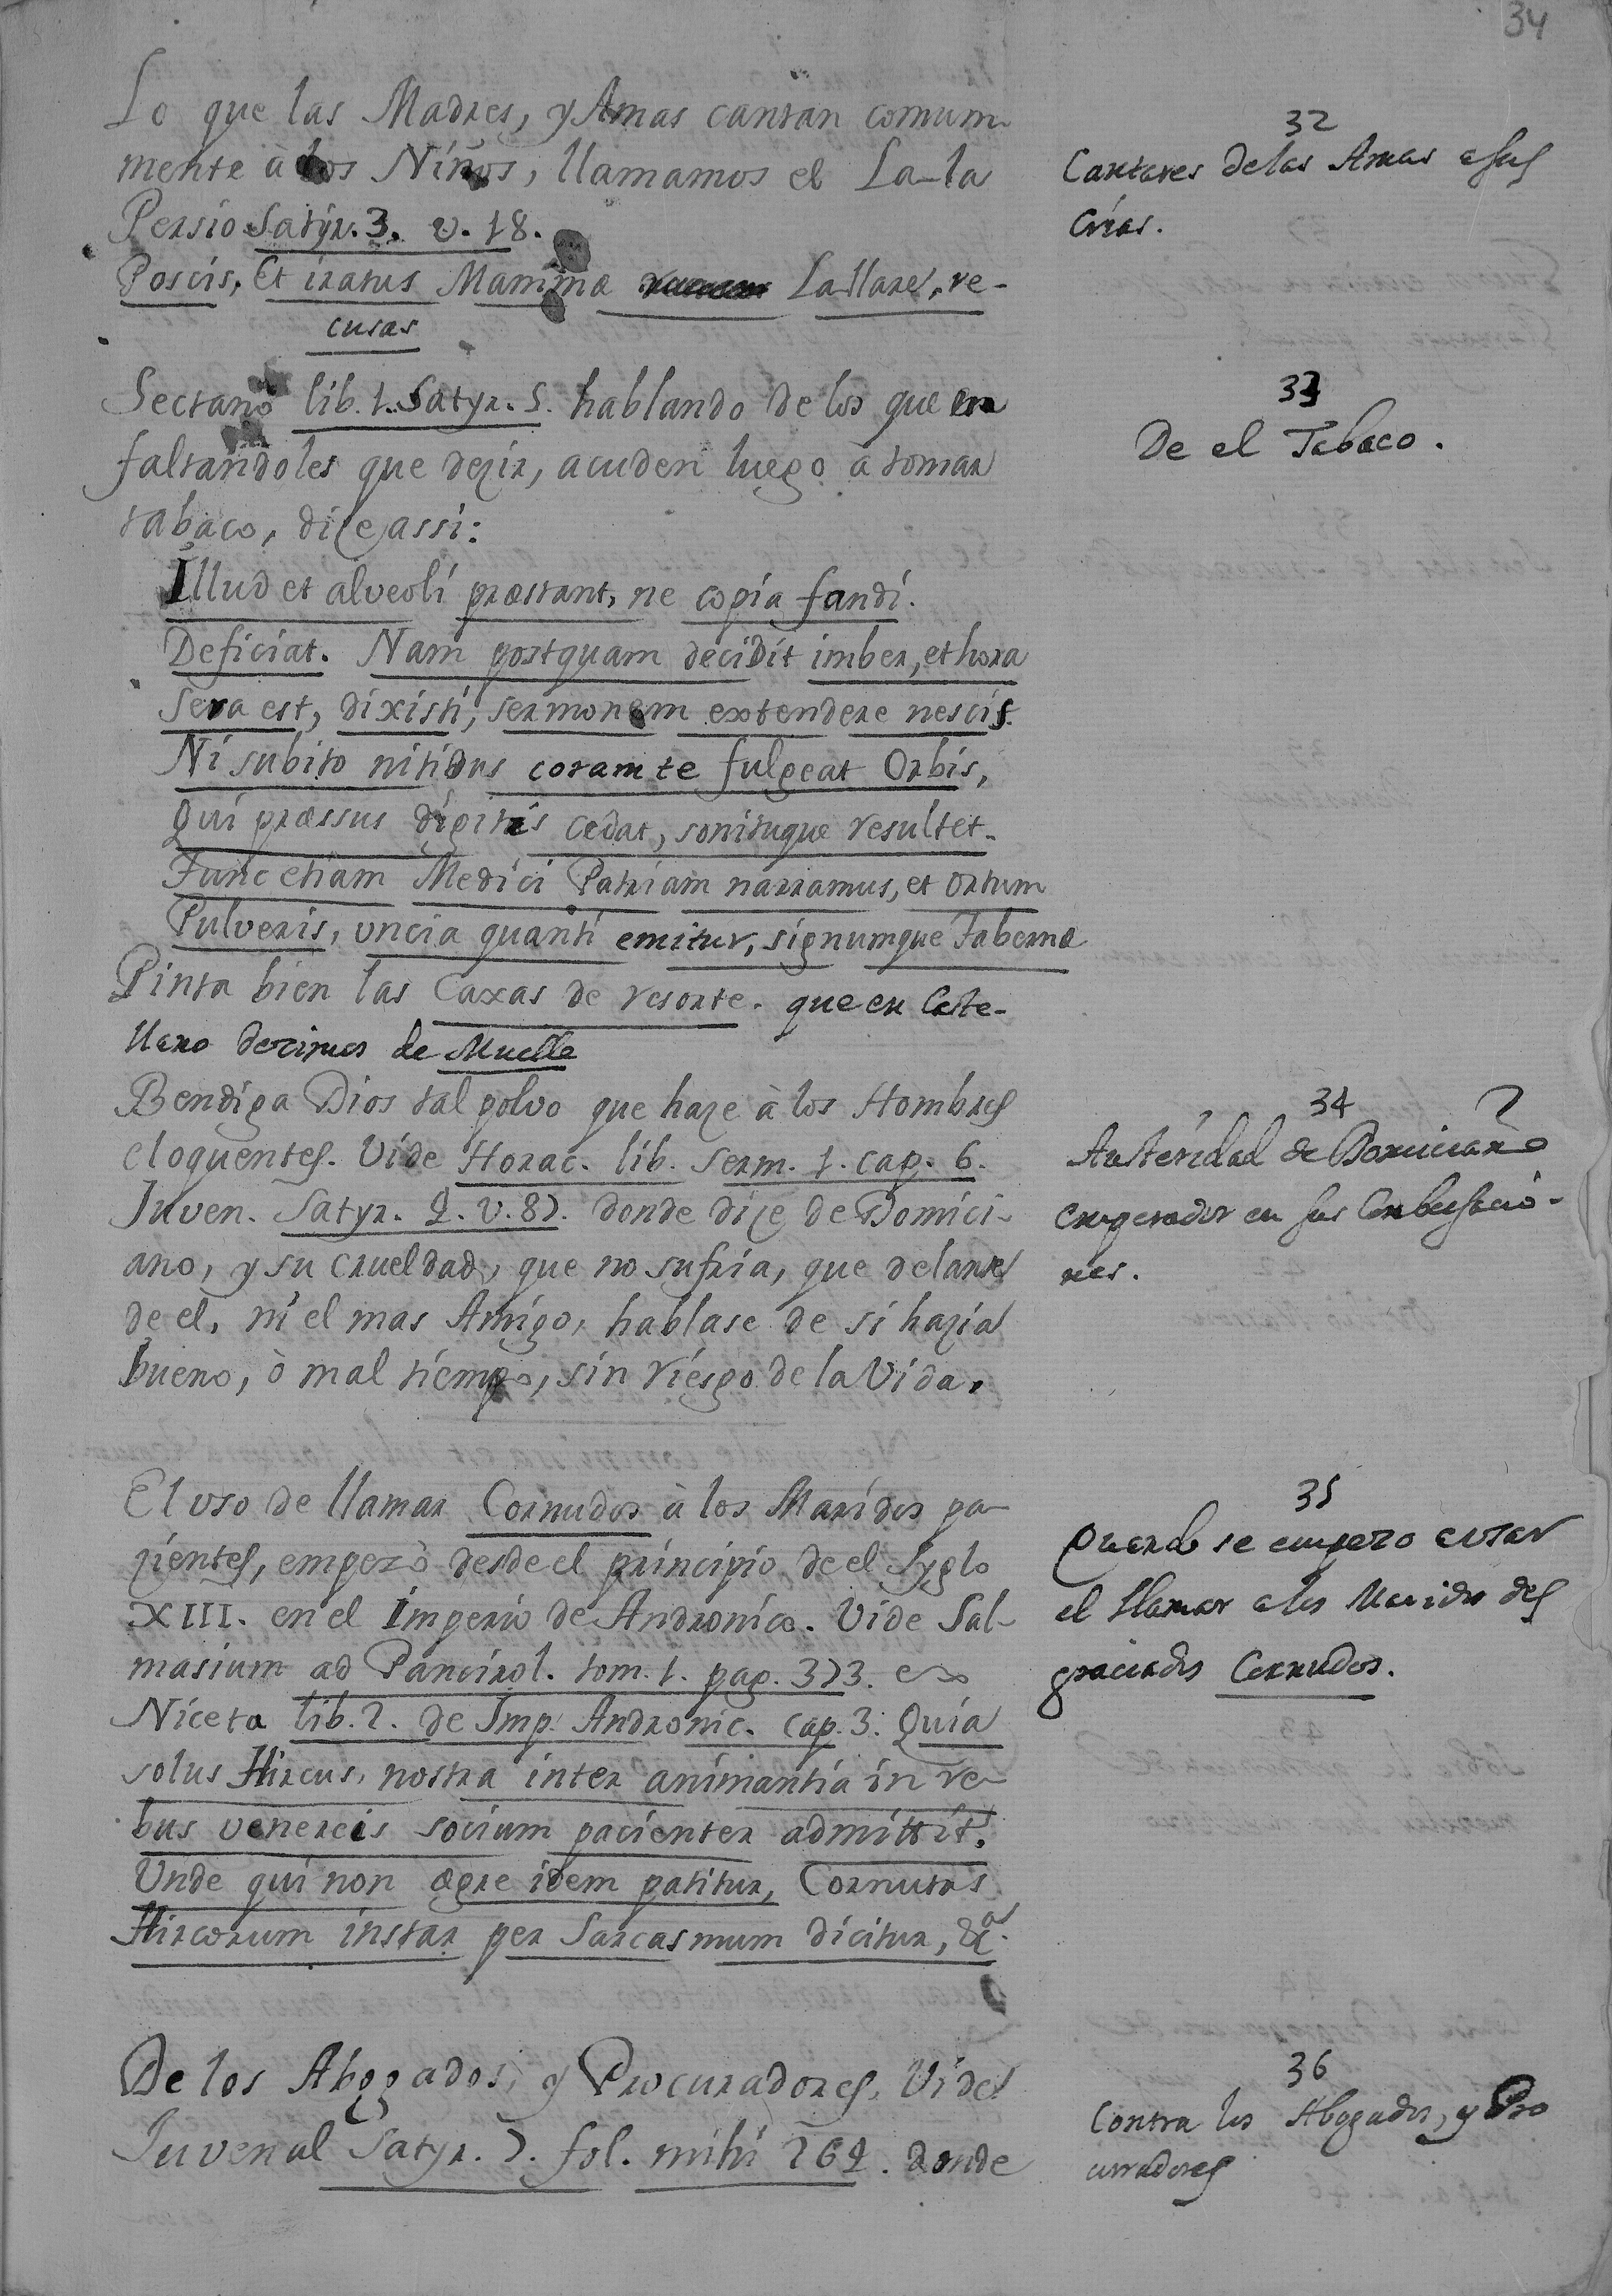 34
Lo que las Madres, y Amas cantan comum-
mente à los Niños, llamamos el La-la
Persio Satyr. 3. v. 18.
Poscis, Et iratus Mammæ Lallare, re-
cusas
32
Cantares de las Amas a sus
Crias.
Sectano lib. 1. Satyr. 5. hablando de los que en
faltandoles que dezir, acuden luego à tomar
tabaco, dize assi:
33
De el Tabaco.
Illud et alveoli præstant, ne copia fandi.
Deficiat. Nam postquam decidit imber, et hora
Sera est, dixisti, sermonem extendere nescis.
Ni subito nitidus coram te fulgeat Orbis,
Qui præssus digitis cedat, sonituque resultet.
Tunc etiam Medici Patriam narramus, et Ortum
Pulveris, uncia quanti emitur, signumque Tabernæ
Pinta bien las Caxas de resorte. que en Caste-
llano dezimos de Muelle
Bendiga Dios tal polvo que haze à los Hombres
eloquentes. Vide Horac. lib. Serm. 1. cap. 6.
Juven. Satyr. 4. v. 87. donde dize de Domici-
ano, y su crueldad, que no sufria, que delante
de el, ni el mas Amigo, hablase de si hazia
bueno, ò mal tiempo, sin riesgo de la Vida.
34
Austeridad de Domiciano
emperador en sus Conbersacio-
nes.
El uso de llamar Cornudos à los Maridos pa-
zientes, empezò desde el principio de el Syglo
XIII. en el Imperio de Andronico. Vide Sal-
masium ad Pancirol. tom. 1. pag. 373.
Niceta lib. 2. de Imp. Andronic. cap. 3. Quia
solus Hircus, nostra inter animantia in re-
bus venereis socium pacienter admittit.
Unde qui non ægre idem patitur, Cornutus
Hircorum instar per Sarcasmum dicitur, &a.
35
Quando se empezo a usar
el llamar a los Maridos des
graciados Cornudos.
De los Abogados, y Procuradores, Vide
Juvenal Satyr. 7. fol. mihi 264. donde
36
Contra los Abogados, y Pro
curadores